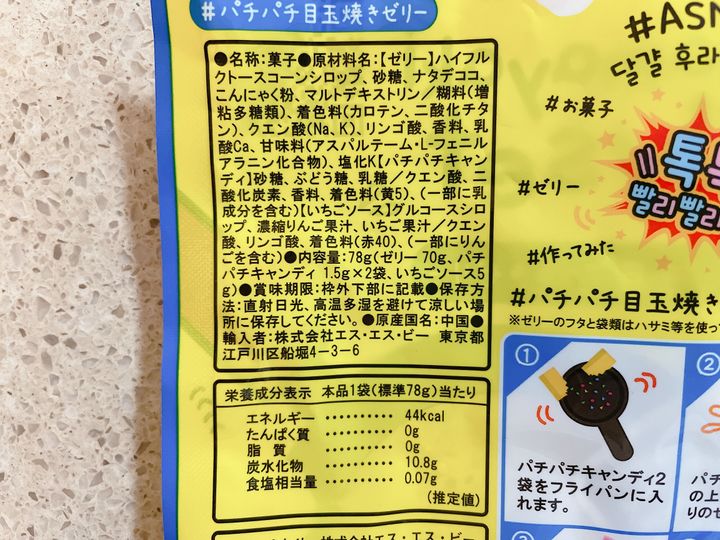 #パチパチ目玉焼きゼリー
●名称:菓子●原材料名:【ゼリー】ハイフル
クトースコーンシロップ、砂糖、ナタデココ、
こんにゃく粉、マルトデキストリン/糊料(増
粘多糖類)、着色料(カロテン、二酸化チタ
ン)、クエン酸(Na、K)、リンゴ酸、香料、乳
酸Ca、甘味料(アスパルテーム・L-フェニル
アラニン化合物)、塩化K【パチパチキャン
ディ】砂糖、ぶどう糖、乳糖/クエン酸、二
酸化炭素、香料、着色料(黄5)、(一部に乳
成分を含む)【いちごソース】グルコースシロ
ップ、濃縮りんご果汁、いちご果汁/クエン
酸、リンゴ酸、着色料(赤40)、(一部にりん
ごを含む)●内容量:78g(ゼリー 70g、パチ
パチキャンディ 1.5g×2袋、いちごソース5
g)●賞味期限:枠外下部に記載●保存方
法:直射日光、高温多湿を避けて涼しい場
所に保存してください。●原産国名:中国●
輸入者:株式会社エス・エス・ビー 東京都
江戸川区船堀4-3-6
栄養成分表示 本品1袋(標準78g)当たり
エネルギー ・・・・・・・・・・ 44kcal
たんぱく質 ・・・・・・・・・・ 0g
脂 質 ・・・・・・・・・・ 0g
炭水化物 ・・・・・・・・・・ 10.8g
食塩相当量 ・・・・・・・・・・ 0.07g
(推定値)
株式会社エス・エス・ビー
#ASM
달걀 후라
#お菓子
톡
빨리빨리
#ゼリー
#作ってみた
#パチパチ目玉焼き
※ゼリーのフタと袋類はハサミ等を使っ
①
パチパチキャンディ2
袋をフライパンに入
れます。
②
パチ
の上
りのせ